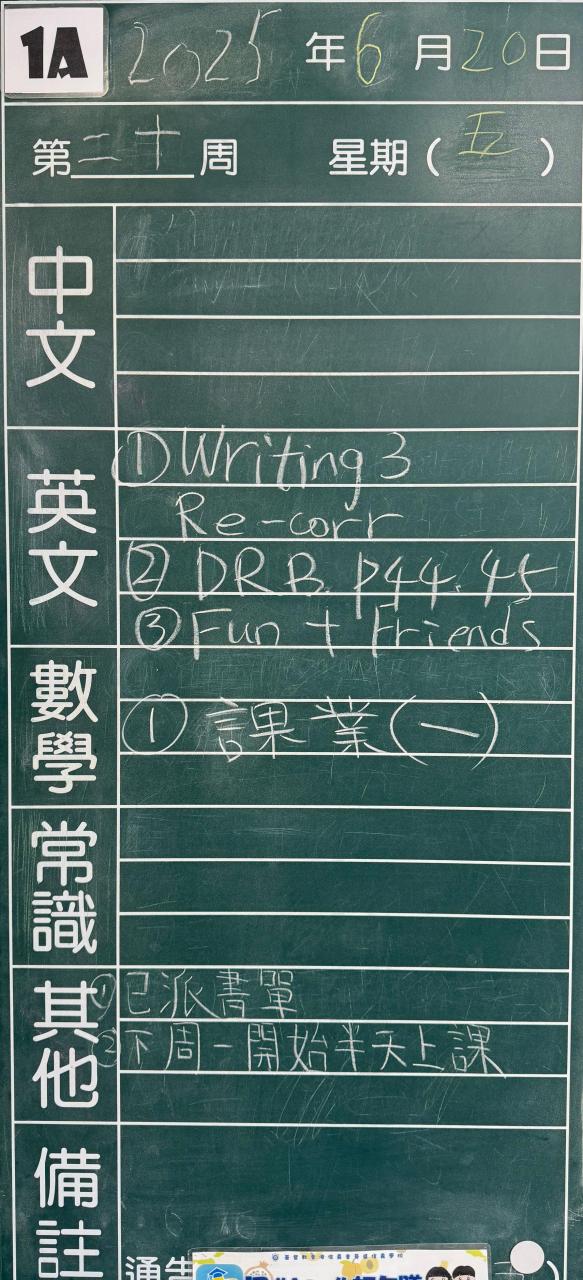 1A 2025年6月20日
第二十周 星期(五)
中文
英文
①Writing 3
Re-corr
② DRB P44.45
③Fun + Friends
數學
① 課業(一)
常識
其他
①已派書單
②下周一開始半天上課
備註
通告